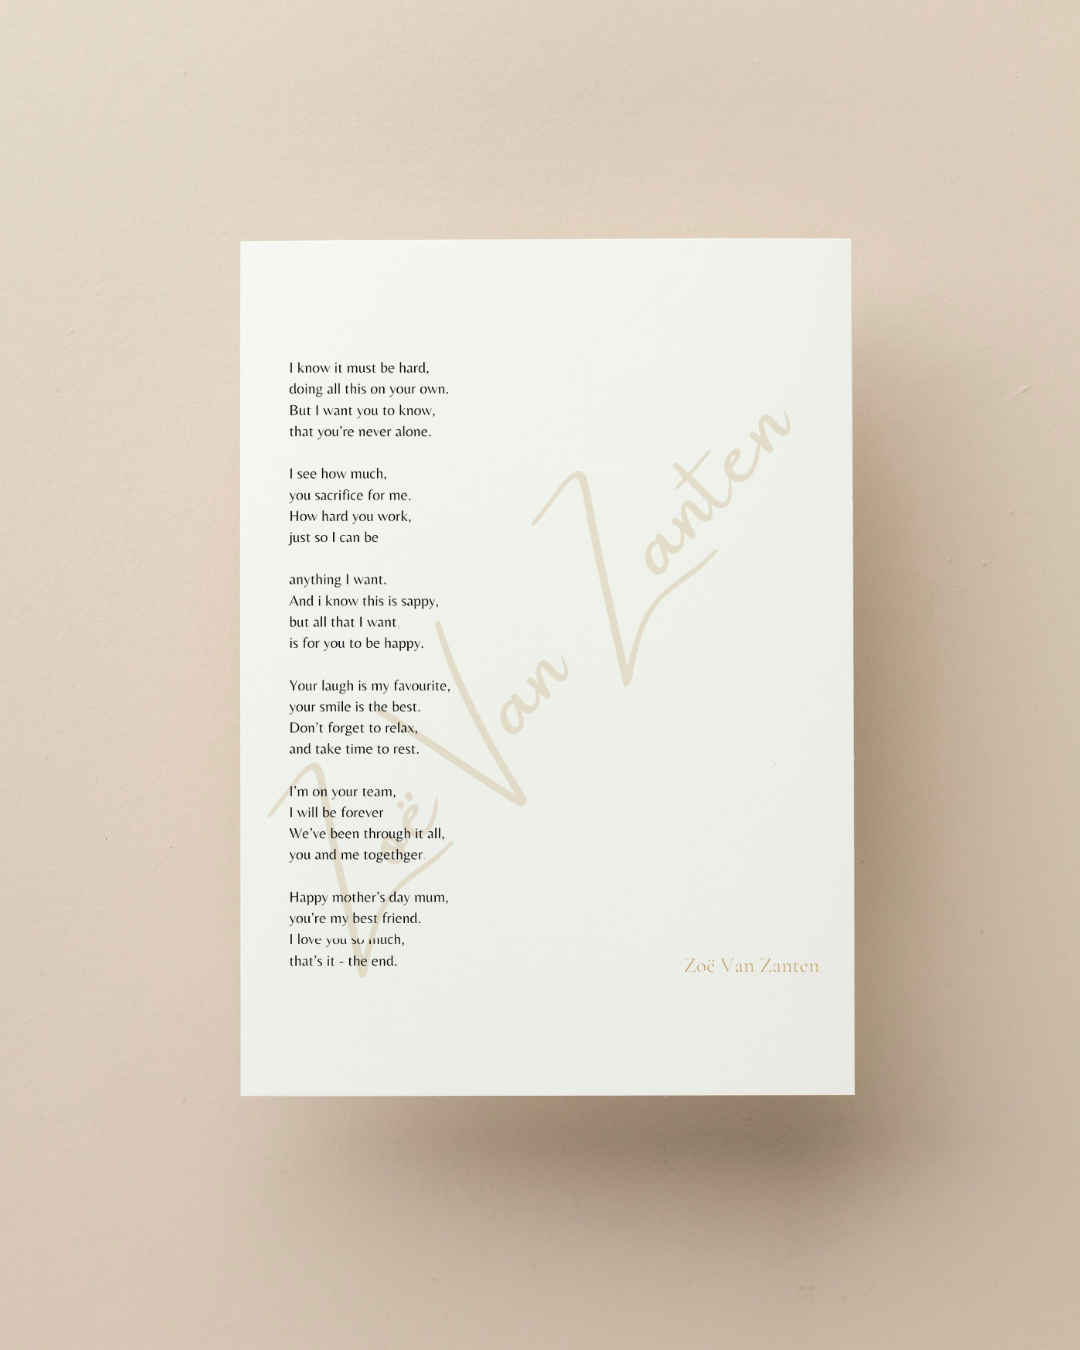 I know it must be hard,
doing all this on your own.
But I want you to know,
that you're never alone.

I see how much,
you sacrifice for me.
How hard you work,
just so I can be

anything I want.
And i know this is sappy,
but all that I want,
is for you to be happy.

Your laugh is my favourite,
your smile is the best.
Don't forget to relax,
and take time to rest.

I'm on your team,
I will be forever
We've been through it all,
you and me togethger.

Happy mother's day mum,
you're my best friend.
I love you so much,
that's it - the end.

Zoë Van Zanten
Zoë Van Zanten